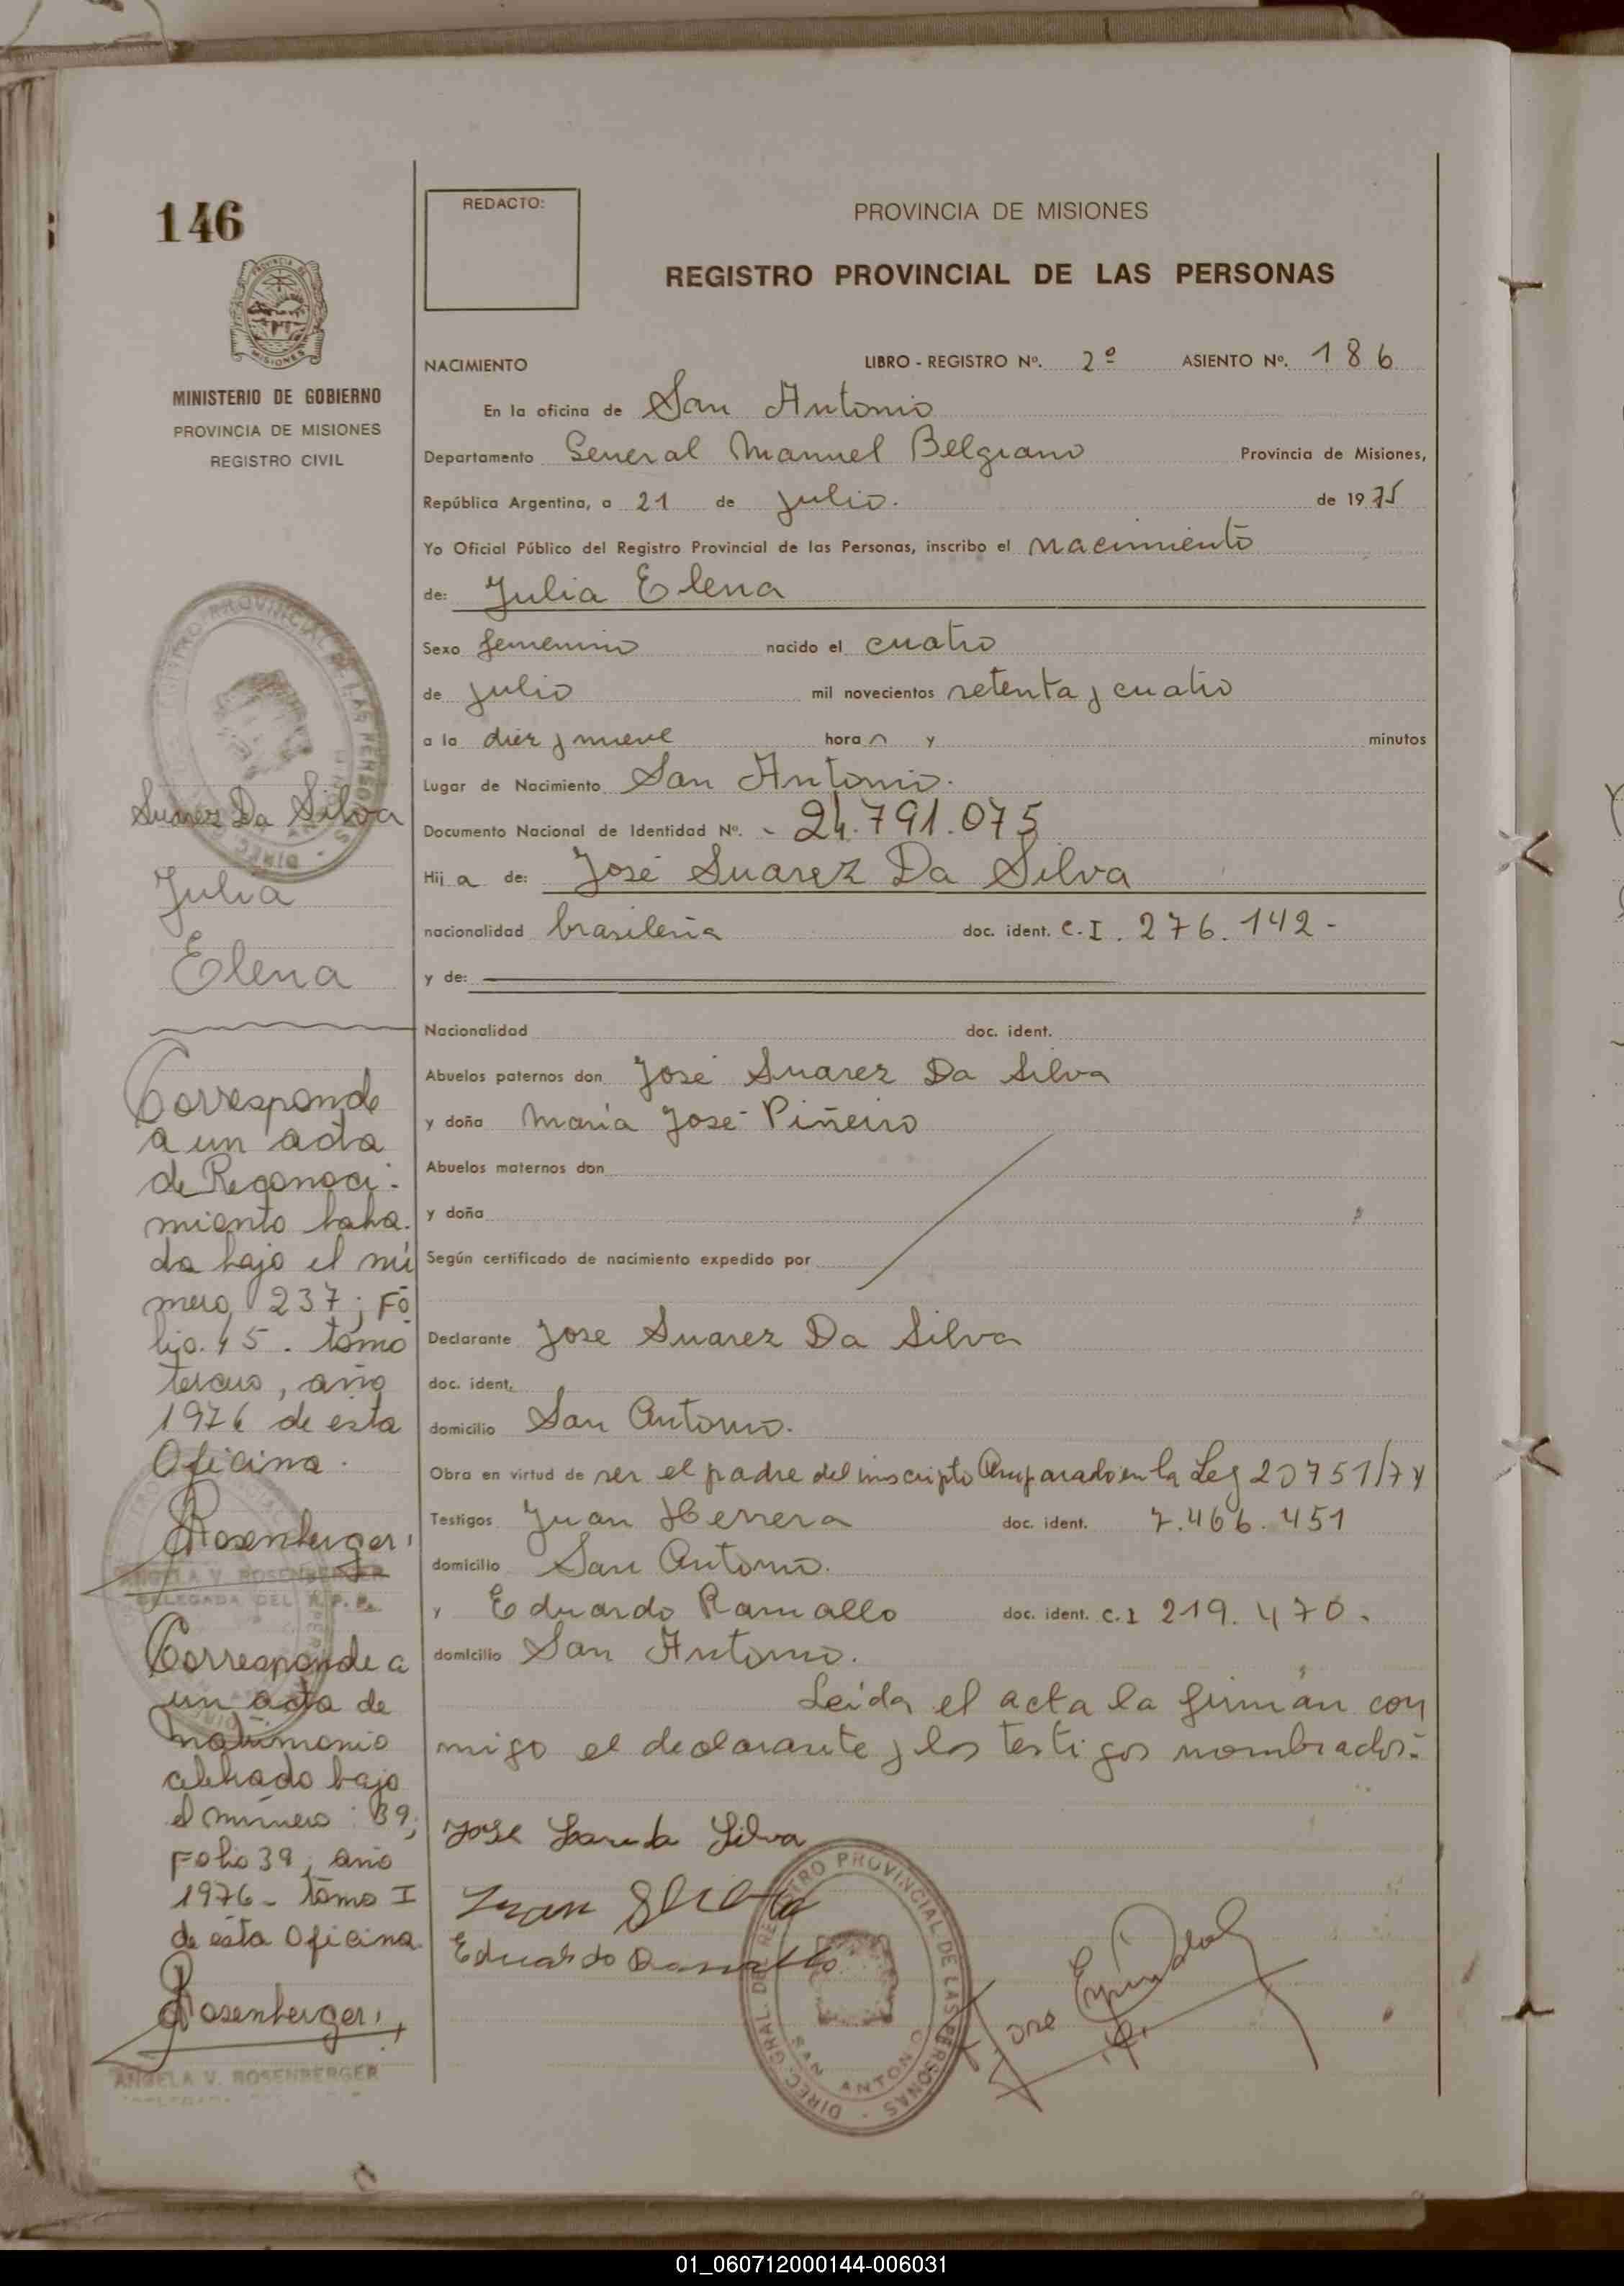 146
MINISTERIO DE GOBIERNO
PROVINCIA DE MISIONES
REGISTRO CIVIL
Suarez Da Silva
Julia
Elena
Corresponde
a un acta
de Reconoci-
miento laba.
da bajo el nú
mero 237; Fo
lio. 45. tomo
tercero, año
1976 de esta
Oficina.
Rosenberger
ANGELA V. ROSENBERGER
DELEGADA DEL R.P.P.
Corresponde a
un acta de
matrimonio
celebrado bajo
el número: 39;
Folio 39, año
1976 - tomo I
de ésta Oficina.
Rosenberger
ANGELA V. ROSENBERGER
REDACTO:
PROVINCIA DE MISIONES
REGISTRO PROVINCIAL DE LAS PERSONAS
NACIMIENTO LIBRO - REGISTRO Nº. 2º ASIENTO Nº. 186
En la oficina de San Antonio
Departamento General Manuel Belgrano Provincia de Misiones,
República Argentina, a 21 de Julio. de 1975
Yo Oficial Público del Registro Provincial de las Personas, inscribo el nacimiento
de: Julia Elena
Sexo femenino nacido el cuatro
de julio mil novecientos setenta y cuatro
a la diez y nueve hora s y minutos
Lugar de Nacimiento San Antonio.
Documento Nacional de Identidad Nº. - 24.791.075
Hij a de: José Suarez Da Silva
nacionalidad brasileña doc. ident. C.I. 276.142-
y de:
Nacionalidad doc. ident.
Abuelos paternos don José Suarez Da Silva
y doña María José Piñeiro
Abuelos maternos don
y doña
Según certificado de nacimiento expedido por
Declarante Jose Suarez Da Silva
doc. ident.
domicilio San Antonio.
Obra en virtud de ser el padre del inscripto Amparado en la Ley 20751/74
Testigos Juan Herrera doc. ident. 7.466.451
domicilio San Antonio.
y Eduardo Ramallo doc. ident. C.I 219.470.
domicilio San Antonio.
Leída el acta la firman con
migo el declarante y los testigos nombrados:
Jose Silva
Juan
Eduardo Ramallo
DIREC. GRAL. DEL REGISTRO PROVINCIAL DE LAS PERSONAS
SAN ANTONIO
Jose
01_060712000144-006031